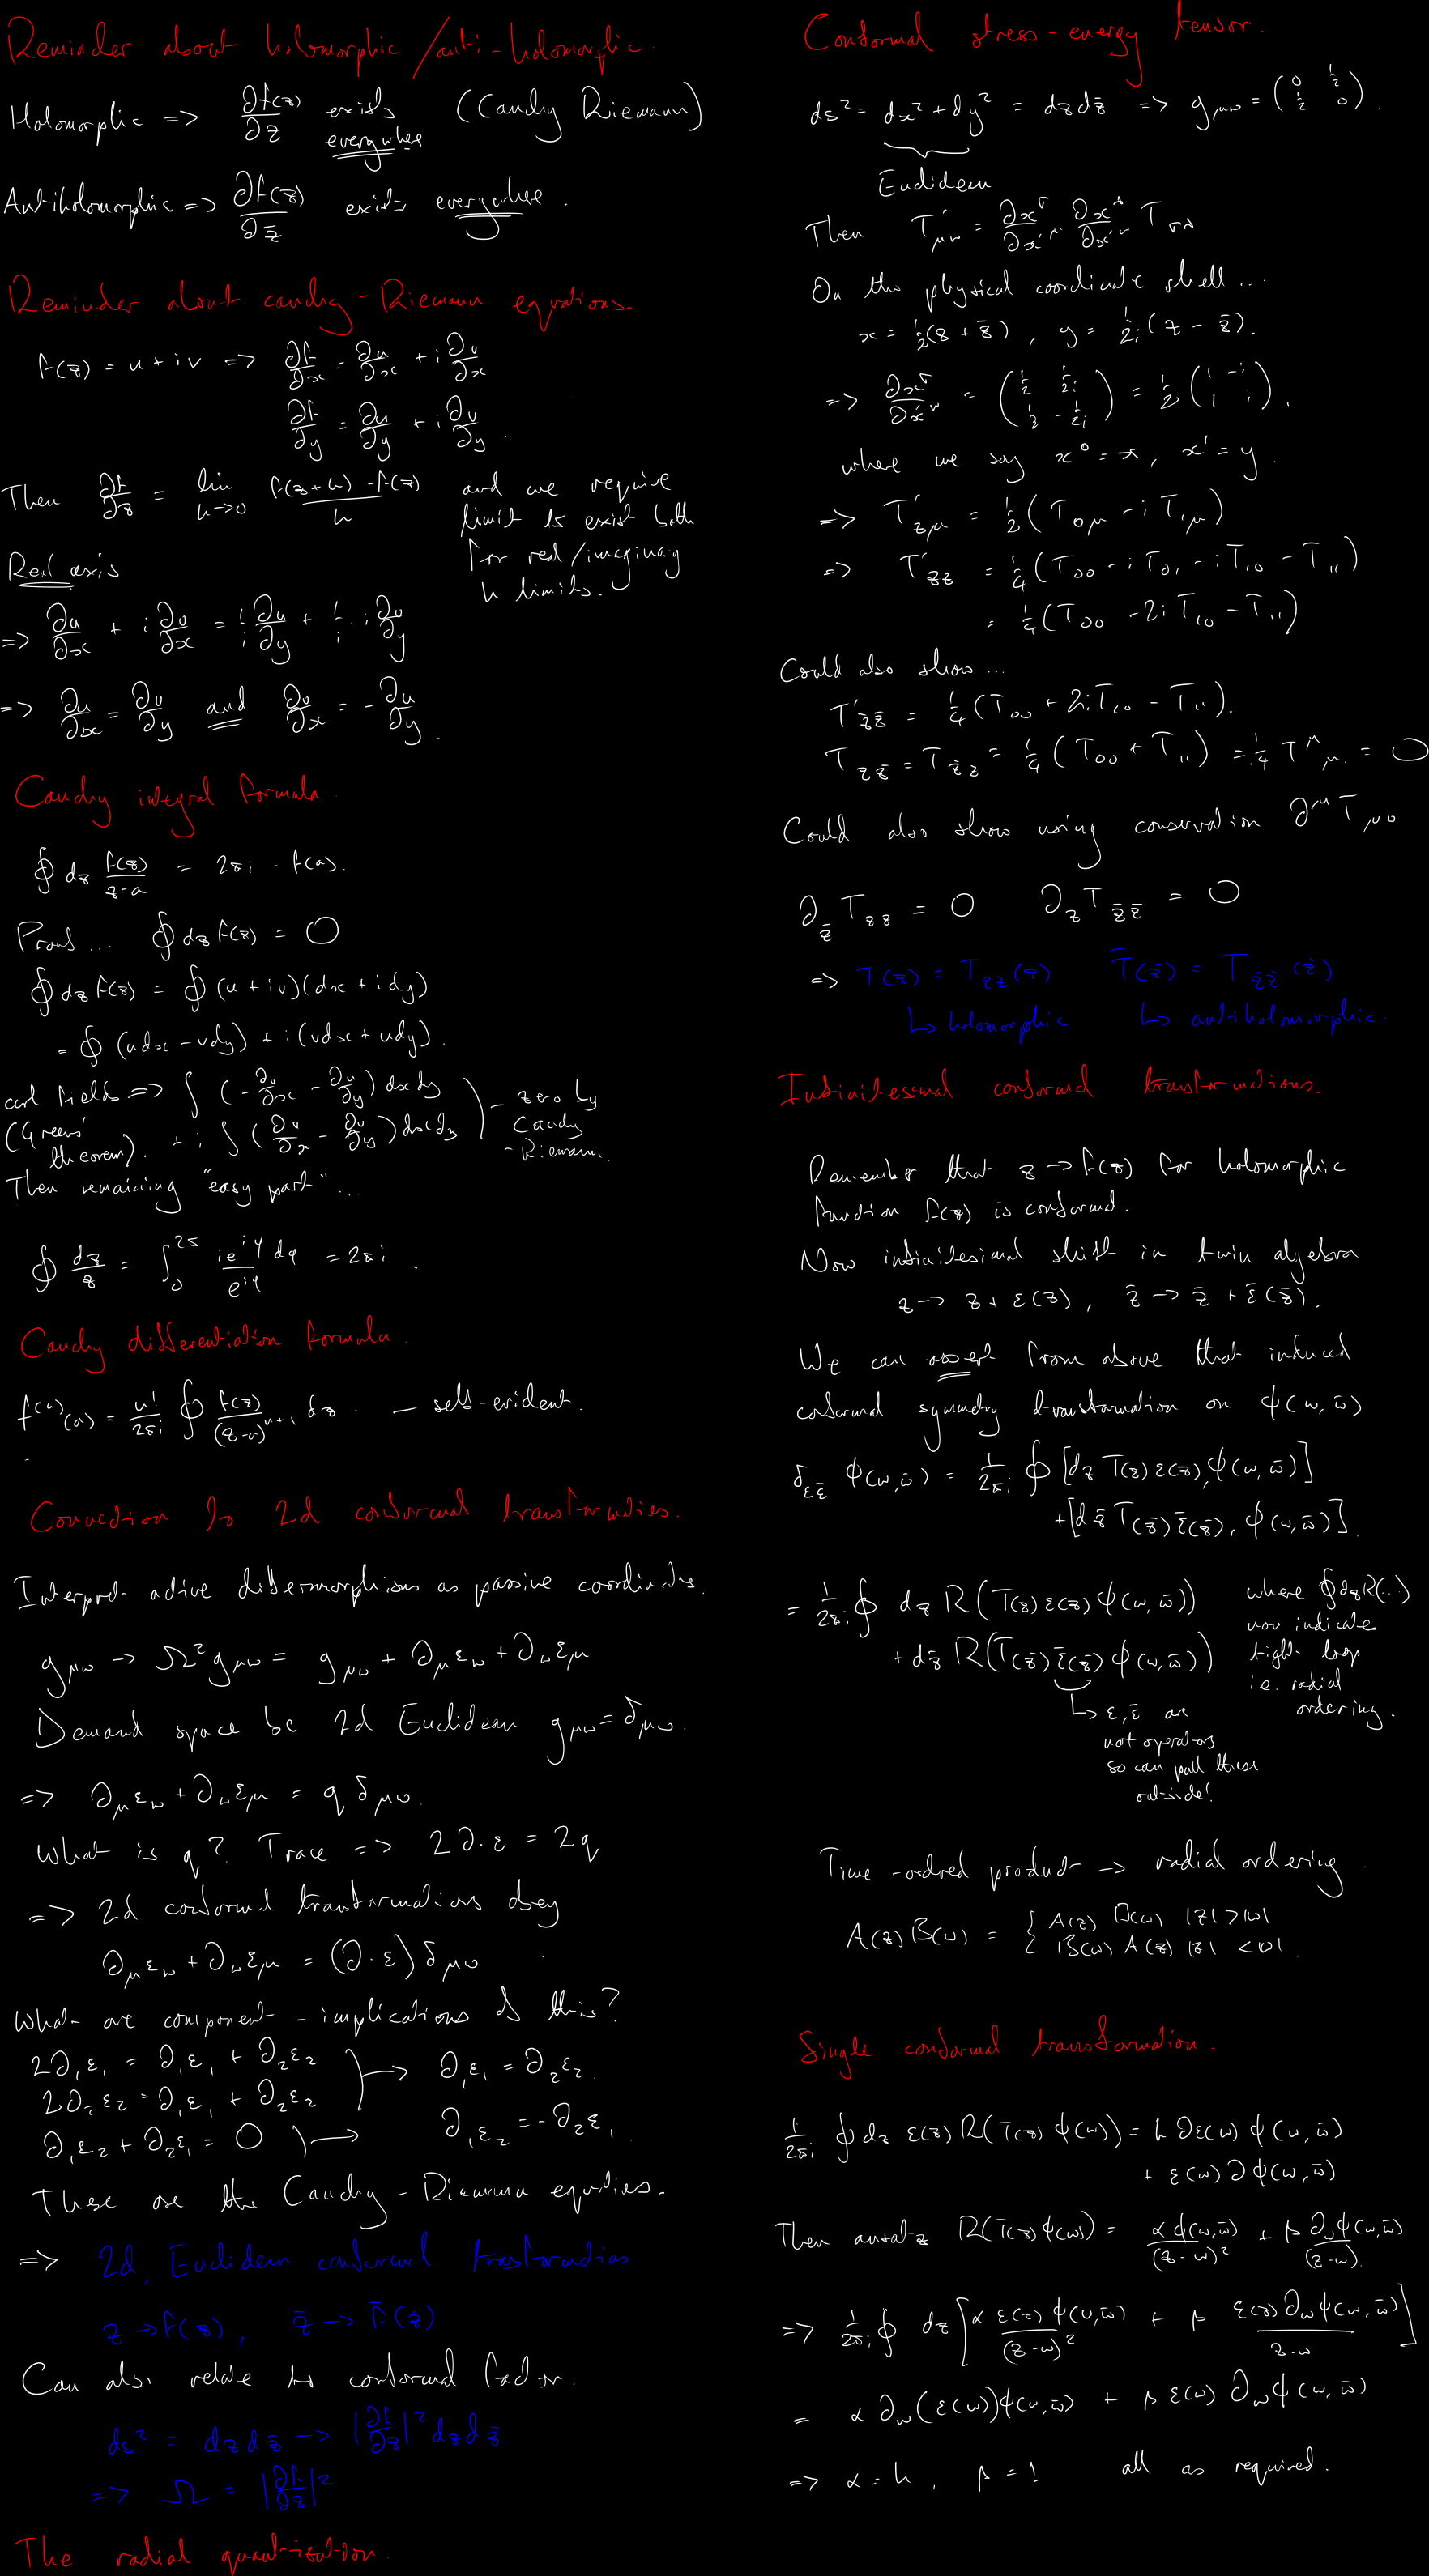 Reminder about holomorphic / anti-holomorphic.
Holomorphic => ∂f(z)/∂z exists everywhere (Cauchy Riemann)
Antiholomorphic => ∂f(z)/∂z̄ exists everywhere.
Reminder about cauchy-Riemann equations.
f(z) = u + iv => ∂f/∂x = ∂u/∂x + i ∂v/∂x
∂f/∂y = ∂u/∂y + i ∂v/∂y.
Then ∂f/∂z = lim h->0 (f(z+h) - f(z))/h and we require
limit to exist both
for real/imaginary
h limits.
Real axis
=> ∂u/∂x + i ∂v/∂x = 1/i ∂u/∂y + 1/i · i ∂v/∂y
=> ∂u/∂x = ∂v/∂y and ∂v/∂x = -∂u/∂y.
Cauchy integral formula.
∮ dz f(z)/(z-a) = 2πi · f(a).
Proof... ∮ dz f(z) = 0
∮ dz f(z) = ∮ (u + iv)(dx + idy)
= ∮ (udx - vdy) + i(vdx + udy).
curl fields => ∫ (-∂v/∂x - ∂u/∂y) dxdy
(Greens' theorem). + i ∫ (∂u/∂x - ∂v/∂y) dxdy
- zero by Cauchy-Riemann.
Then remaining "easy part"...
∮ dz/z = ∫₀^2π ie^iφ dφ / e^iφ = 2πi.
Cauchy differentiation formula.
f^(n)(a) = n!/2πi ∮ f(z)/(z-a)^n+1 dz. - self-evident.
Connection to 2d conformal transformations.
Interpret active diffeomorphisms as passive coordinates.
g_μν -> Ω² g_μν = g_μν + ∂_μ ε_ν + ∂_ν ε_μ
Demand space be 2d Euclidean g_μν = δ_μν.
=> ∂_μ ε_ν + ∂_ν ε_μ = q δ_μν.
What is q? Trace => 2∂·ε = 2q
=> 2d conformal transformations obey
∂_μ ε_ν + ∂_ν ε_μ = (∂·ε) δ_μν
What are component-implications of this?
2∂₁ε₁ = ∂₁ε₁ + ∂₂ε₂
2∂₂ε₂ = ∂₁ε₁ + ∂₂ε₂ -> ∂₁ε₁ = ∂₂ε₂.
∂₁ε₂ + ∂₂ε₁ = 0 -> ∂₁ε₂ = -∂₂ε₁.
These are the Cauchy-Riemann equations.
=> 2d, Euclidean conformal transformations
z -> f(z), z̄ -> f̄(z̄)
Can also relate to conformal factor.
ds² = dzdz̄ -> |∂f/∂z|² dzdz̄
=> Ω = |∂f/∂z|²
The radial quantisation.
Conformal stress-energy tensor.
ds² = dx² + dy² = dzdz̄ => g_μν = (0 1/2 1/2 0).
Euclidean
Then T'_μν = ∂x^σ/∂x'^μ ∂x^λ/∂x'^ν T_σλ
On the physical coordinate shell...
x = 1/2(z + z̄), y = 1/2i (z - z̄).
=> ∂x^σ/∂x'^ν = (1/2 1/2i 1/2 -1/2i) = 1/2 (1 -i 1 i),
where we say x⁰ = x, x¹ = y.
=> T'_zμ = 1/2 (T_0μ - i T_1μ)
=> T'_zz = 1/4 (T_00 - i T_01 - i T_10 - T_11)
= 1/4 (T_00 - 2i T_10 - T_11)
Could also show...
T'_z̄z̄ = 1/4 (T_00 + 2i T_10 - T_11).
T_zz̄ = T_z̄z = 1/4 (T_00 + T_11) = 1/4 T^μ_μ = 0
Could also show using conservation ∂^μ T_μν
∂_z̄ T_zz = 0 ∂_z T_z̄z̄ = 0
=> T(z) = T_zz(z) T̄(z̄) = T_z̄z̄(z̄)
↳ holomorphic ↳ antiholomorphic.
Infinitessimal conformal transformations.
Remember that z -> f(z) for holomorphic
function f(z) is conformal.
Now infinitesimal shift in twin algebra
z -> z + ε(z), z̄ -> z̄ + ε̄(z̄).
We can assert from above that induced
conformal symmetry transformation on φ(w, w̄)
δ_εε̄ φ(w,w̄) = 1/2πi ∮ [dz T(z) ε(z), φ(w, w̄)]
+ [dz̄ T(z̄) ε̄(z̄), φ(w, w̄)].
= 1/2πi ∮ dz R(T(z) ε(z) φ(w, w̄))
+ dz̄ R(T(z̄) ε̄(z̄) φ(w, w̄))
where ∮dzR(...)
now indicates
tight loop
i.e. radial
ordering.
↳ ε, ε̄ are
not operators
so can pull these
outside!
Time-ordered product -> radial ordering.
A(z) B(w) = { A(z) B(w) |z| > |w|
B(w) A(z) |z| < |w|.
Single conformal transformation.
1/2πi ∮ dz ε(z) R(T(z) φ(w)) = h ∂ε(w) φ(w, w̄)
+ ε(w) ∂φ(w, w̄)
Then ansatz R(T(z) φ(w)) = α φ(w,w̄)/(z-w)² + β ∂_w φ(w,w̄)/(z-w).
=> 1/2πi ∮ dz [α ε(z) φ(w,w̄)/(z-w)² + β ε(z) ∂_w φ(w, w̄)/(z-w)]
= α ∂_w(ε(w)) φ(w, w̄) + β ε(w) ∂_w φ(w, w̄)
=> α = h, β = 1 all as required.